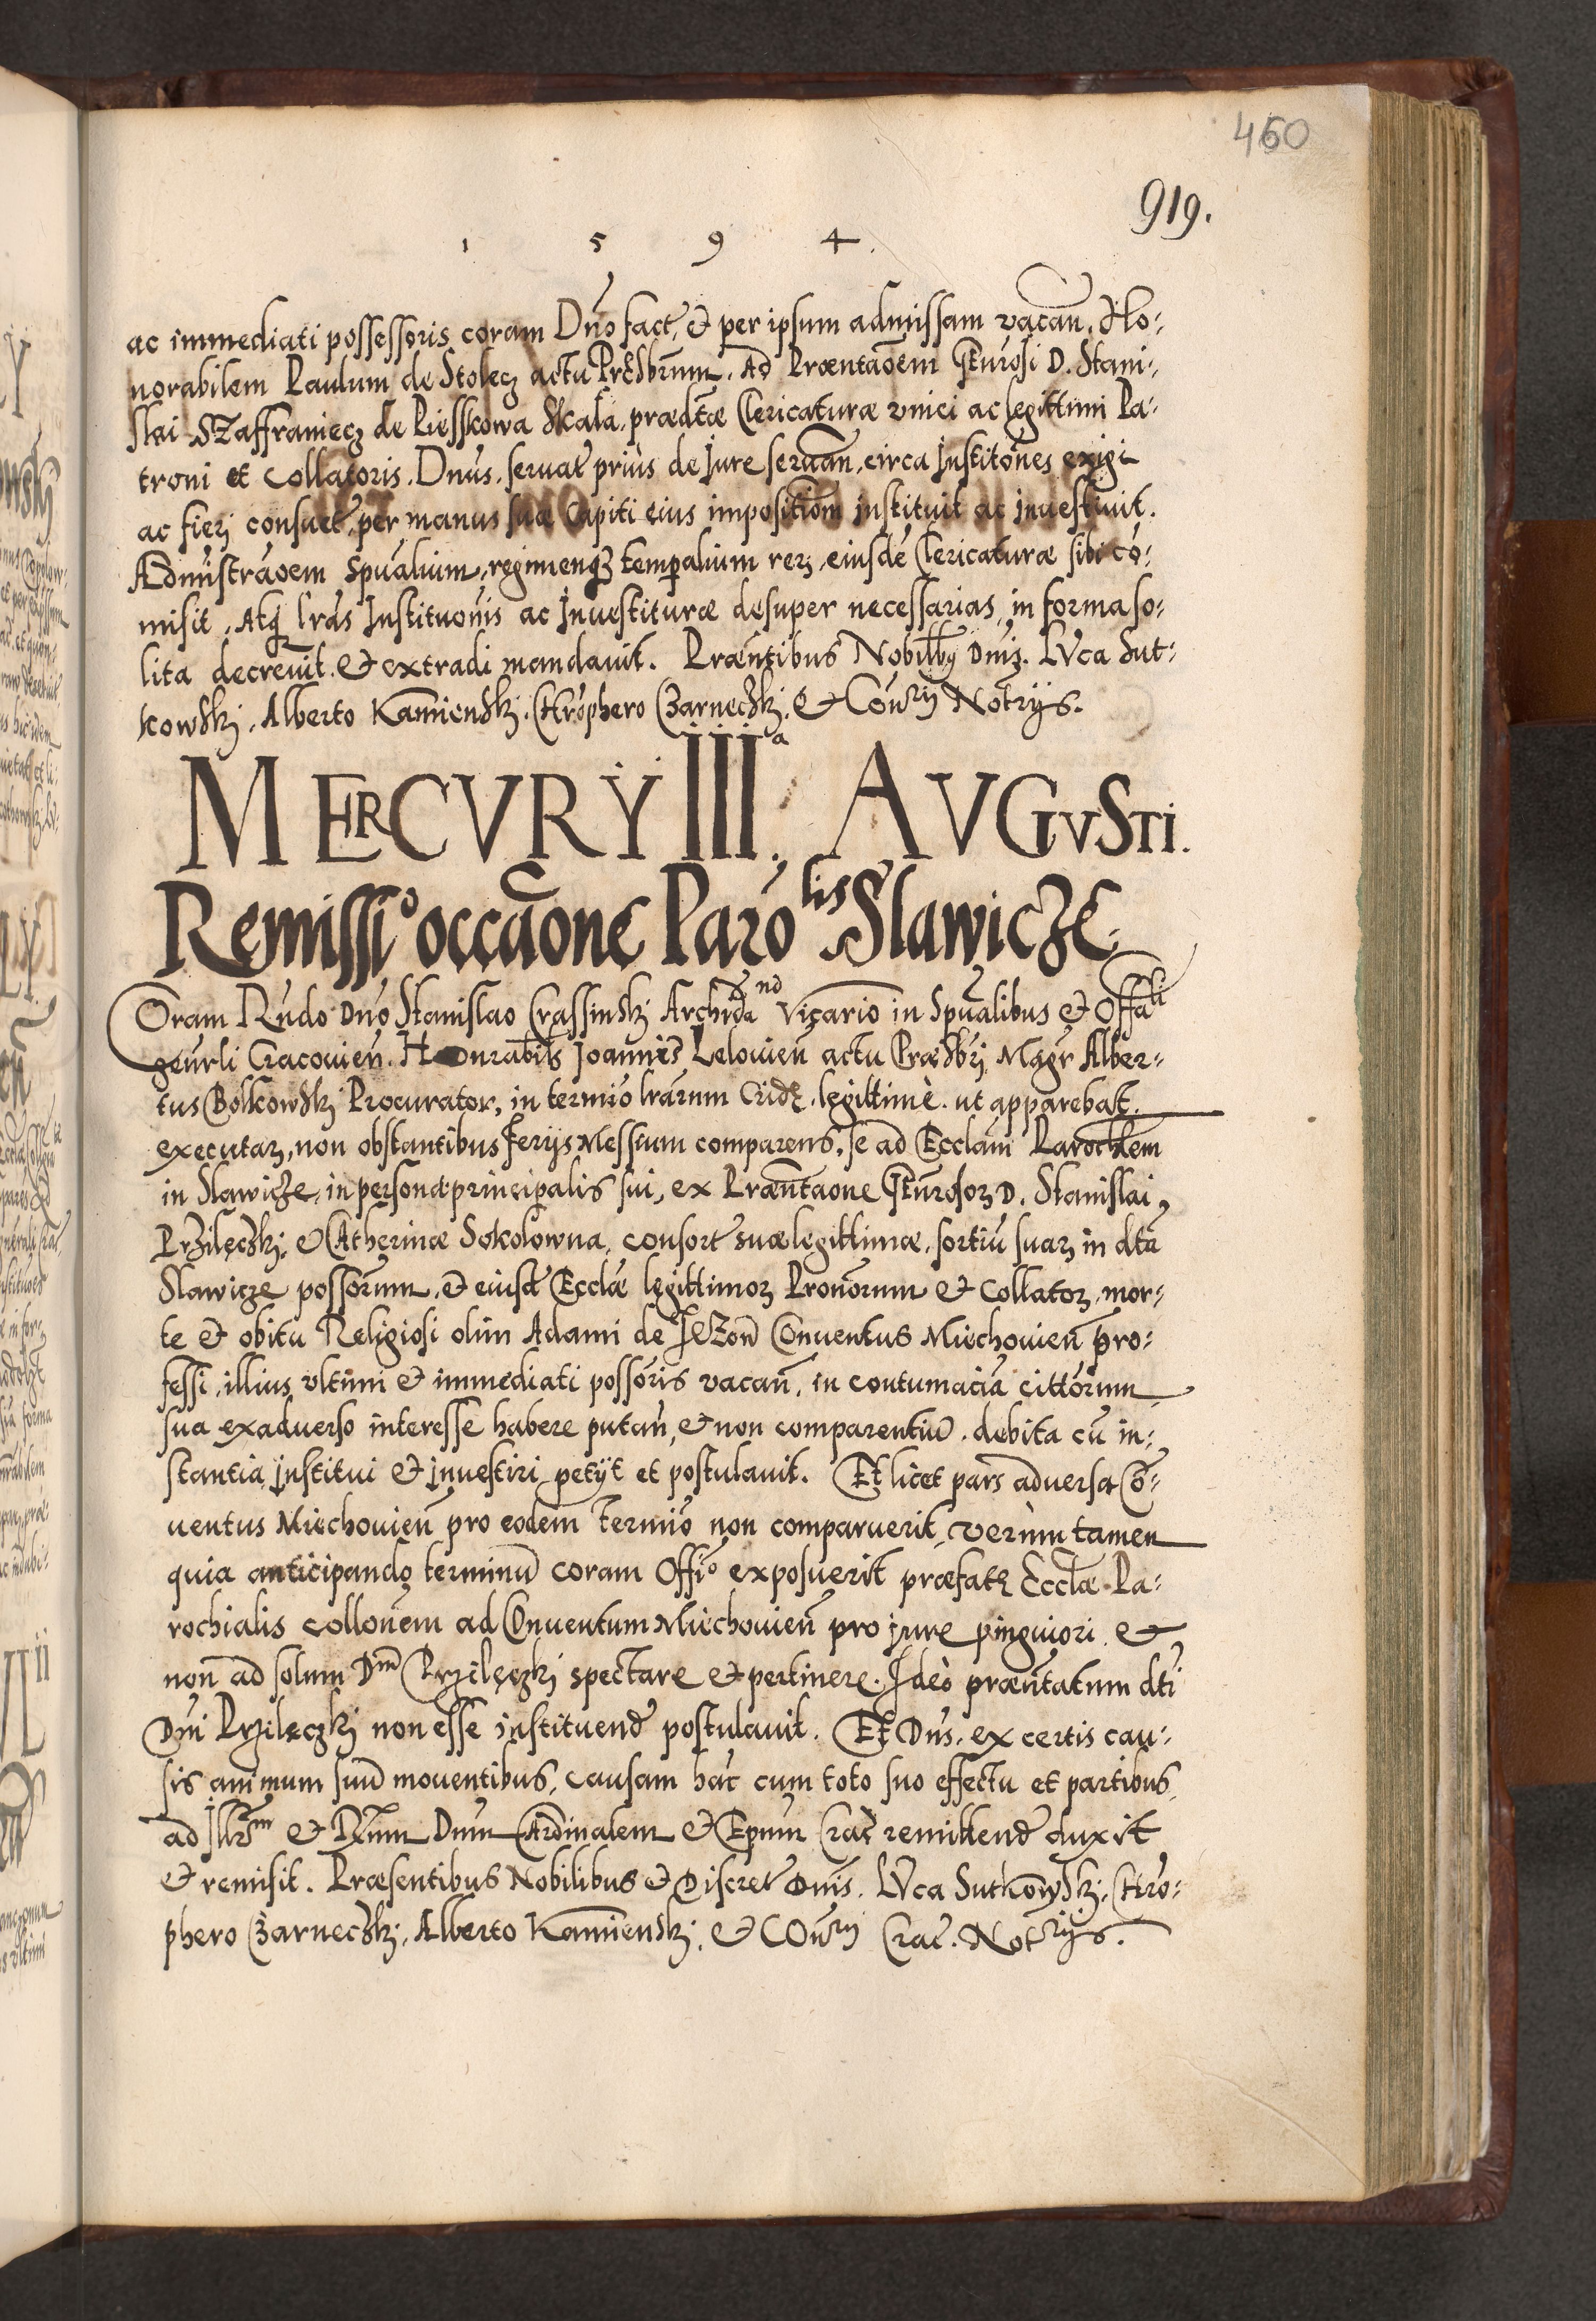 460
919.
1 5 9 4.
ac immediati possessoris coram Dn̄o fact, et per ipsum admissam vacan̄. Ho:
norabilem Paulum de Stolecz actu Præsbrūm. Ad Præntaōem Gn̄rosi D. Stani:
slai Szaffraniecz de Piesskowa Skala, prædtæ Clericaturæ vnici ac legittimi Pa:
troni et Collatoris. Dnūs, seruat prius de Jure seruan̄, circa Institōnes exigi
ac fierj consuet, per manus suæ Capiti eius impositiōm instituit ac inuestiuit.
Admistrāoem Spūalium, regimenq3 temp̄alium rerz, eiusdē Clericaturæ sibi cō:
misit. Atq3 l̄ras Instituōnis ac Inuestituræ desuper necessarias, in forma so:
lita decreuit et extradi mandauit. Præntibus Nobilby Dn̄iz. Lvca Sut:
kowskj, Alberto Kamienskj, Chrōphero Czarneczkj, et Coūrij Notrijs.
MERCVRY IIIa. AVGVSTI.
Remissio occāone Parōlis Slawicze.
Coram Rn̄do Dn̄o Stanislao Crassinskj Archidand Vicario in Spūalibus et Offali
genr̄li Cracouien̄. Honrabilis Joannis Lelouien̄ actu Præsbrj Magr̄ Alber:
tus Bolkowskj Procurator, in termīo lr̄arum Cridæ, legittimè, ut apparebat
executarz, non obstantibus Ferijs Messium comparens, se ad Ecclām Parochlem
in Slawicze, in persona principalis sui, ex Præntaone Gn̄rosorz D. Stanislai
Przileczkj, et Catherinæ Sokolowna, consort suæ legittimæ, sortiū suarz in dtā
Slawicze possōrum, et eiusd Ecclæ legittimorz Pronōrum et Collatorz, mor:
te et obitu Religiosi olim Adami de Jezōn Conuentus Miechouien̄ pro:
fessi, illius vltimi et immediati possōris vacan̄, in contumaciā cittōrum
sua exaduerso interesse habere putan̄, et non comparentiū, debita cū in:
stantia institui et inuestiri petijt et postulauit. Et licet pars aduersa Cō:
uentus Miechouien̄ pro eodem termīo non comparuerit, verum tamen
quia anticipando terminū coram Offio exposuerit præfatæ Ecclæ Pa:
rochialis collonēm ad Conuentum Miechouien̄ pro jure pinguiori et
non ad solum Dnm Przileczkj spectare et pertinere. Ideò præn̄tatum dti
Dni Przileczkj non esse instituend postulauit. Et Dns. ex certis cau:
sis animum suū mouentibus, causam hāc cum toto suo effectu et partibus
ad Illrm et Rn̄um Dnum Cardinalem et Ep̄um Crac̄ remittend duxit
et remisit. Præsentibus Nobilibus et Discret Dnis. Lvca Sutkowskj, Chrō:
phero Czarneczkj, Alberto Kamienskj, et COūrij Crac̄. Notrijs.